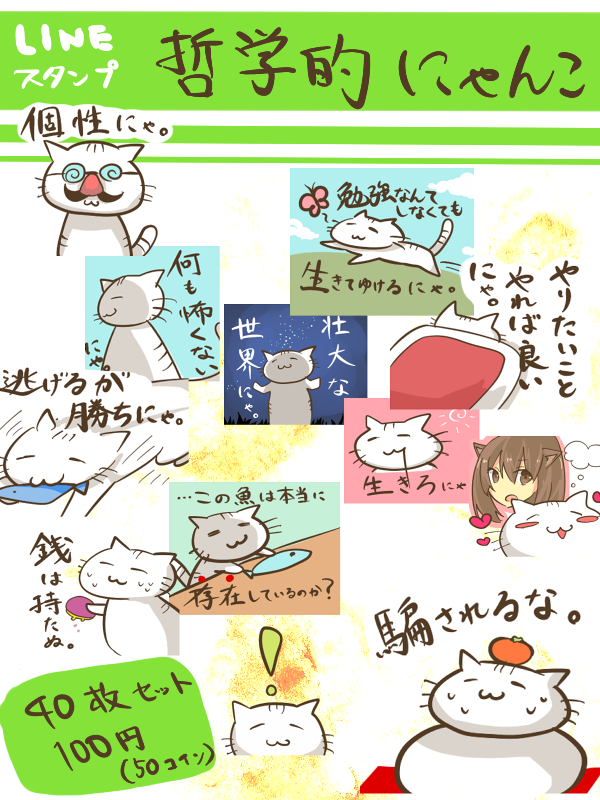 LINE
スタンプ
哲学的にゃんこ
個性にゃ。
勉強なんて
しなくても
生きてゆけるにゃ。
何も怖くない
にゃ。
壮大な
世界にゃ。
やりたいこと
やれば良い
にゃ。
逃げるが
勝ちにゃ。
生きろにゃ
…この魚は本当に
存在しているのか?
銭は
持たぬ。
騙されるな。
!
40枚セット
100円
(50コイン)